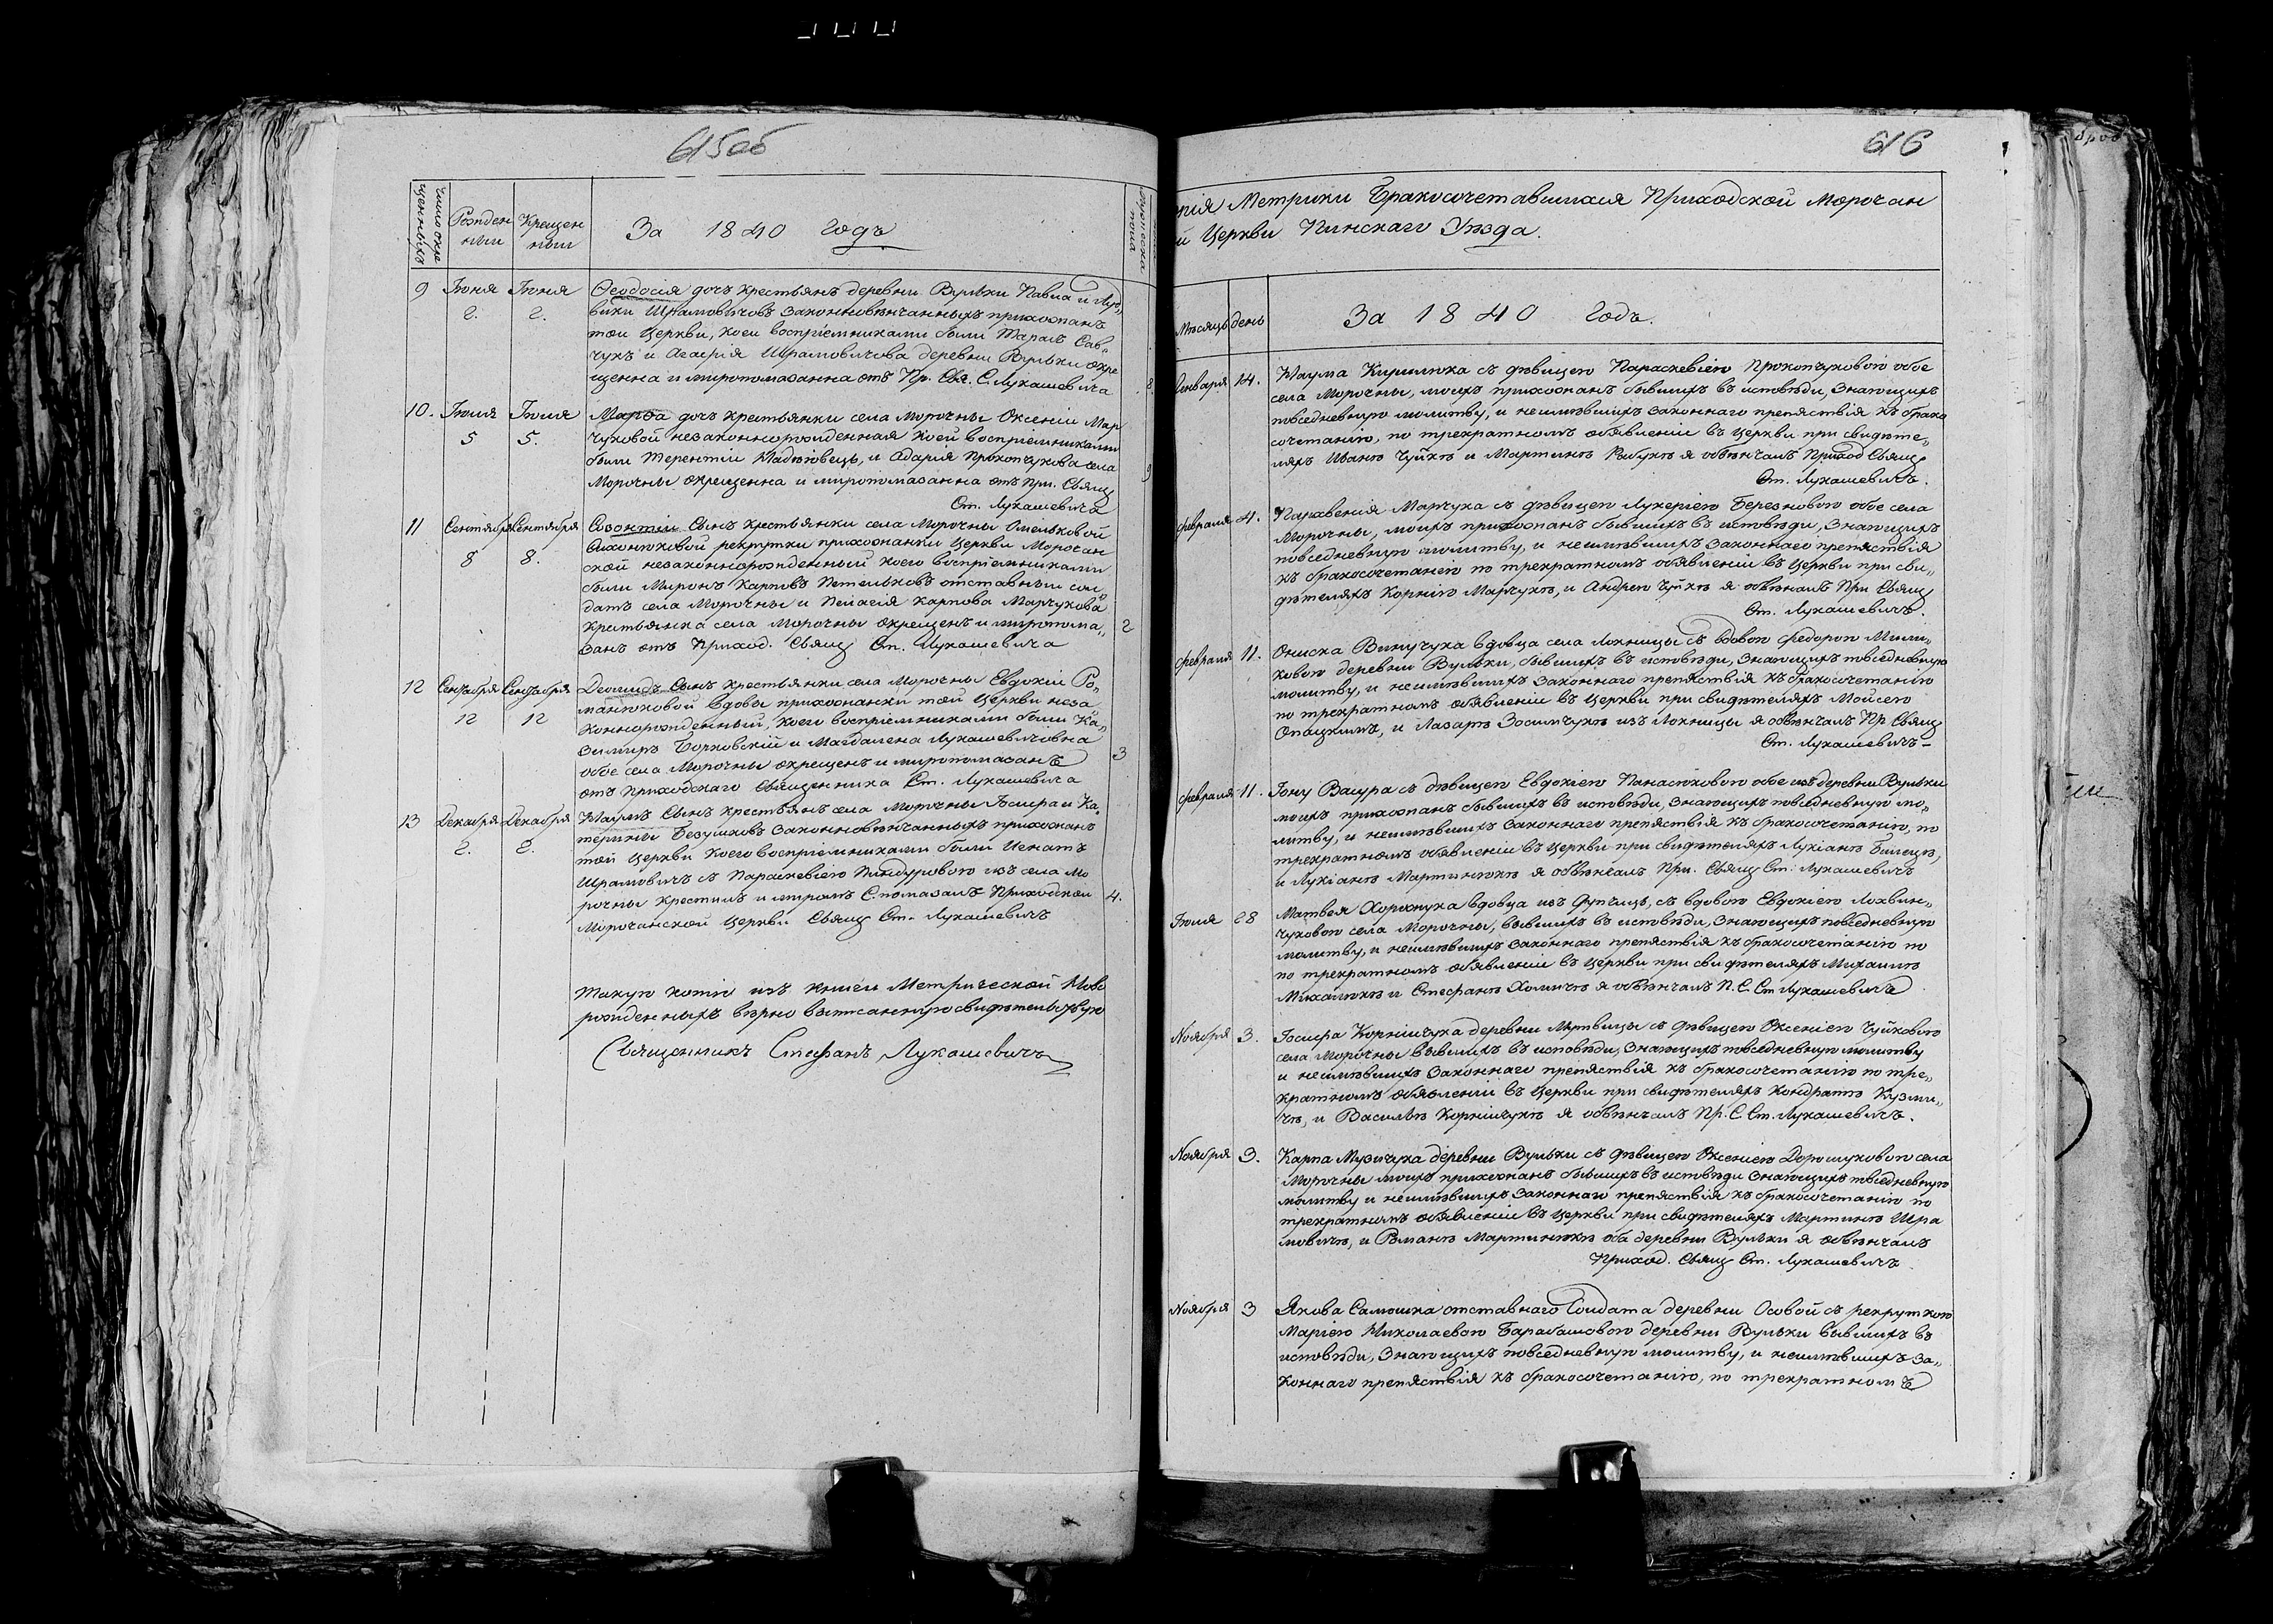 615об
число окре
щенныхъ
Рожден
ныи
Крещен
ныи
За 1840 годъ
9 Іюня 2. Іюня 2. Ѳеодосія дочъ крестьянъ деревни Вульки Павла и Люд„
вики Шрамовичовъ законновѣнчанныхъ прихожанъ
той Церкви, коеи воспріемниками были Тарасъ Сав„
чукъ и Агафія Шрамовичова деревни Вульки окре
щенна и миропомазанна отъ Пр. Свя. С. Лукашевича
10. Іюля 5 Іюля 5. Марфа дочъ крестьянки села Морочны Оксеніи Мар
чуковой незаконнорожденная коей воспріемниками
были Терентіи, и Одарія Прокопчукова села
Морочны окрещенна и миропомазанна отъ При. Свящ
Ст. Лукашевича
11 Сентября 8 Сентября 8. Созонтіи Сынъ крестьянки села Морочны Омельковой
рекрутки прихожанки Церкви Морочан
ской незаконнорожденный коего воспріемниками
были Миронъ Карповъ Петельковъ отставныи сол
датъ села Морочны и Пелагія Карпова Марчукова
крестьянка села Морочны окрещенъ и миропома„ 2
занъ отъ Приход. Свящ Ст. Лукашевича
12 Сентября 12 Сентября 12 Деомидъ Сынъ крестьянки села Морочны Евдокіи Ро„
манюковой вдовы прихожанки той Церкви неза
коннорожденный, коего воспріемниками были Ка„
зимиръ Бочковскій и Магдалена Лукашевичовна 3
обое села Морочны окрещенъ и миропомазанъ
отъ Приходскаго Священника Ст. Лукашевича
13 Декабря 2. Декабря 2. Наумъ Сынъ крестьянъ села Морочны Іосифа и Ка„
терины Безушковъ законновѣнчанныхъ прихожанъ
той Церкви коего воспріемниками были Игнатъ
Шрамовичъ съ Параскевіею Пиндуровою изъ села Мо
рочны крестилъ и миромъ С. помазалъ Приходской 4.
Морочанской Церкви Свящ Ст. Лукашевичъ
Такую копію изъ книги Метрической Ново
рожденныхъ вѣрно выписанную свидѣтельствую
Священникъ Стефанъ Лукашевичъ
616
рія Метрики Бракосочетавшихся Приходской Морочан
й Церкви Пинскаго Уѣзда.
Мѣсяцъ день За 1840 Годъ.
Января 14. Наума Кирилика съ дѣвицею Параскевіею Прокопчуковою обое
села Морочны, моихъ прихожанъ бывшихъ въ исповѣди, знающихъ
повседневную молитву, и неимѣвшихъ законнаго препяствія къ брако
сочетанію, по трекратномъ объявленіи въ Церкви при свидѣте„
ляхъ Иванѣ Чуйкѣ и Мартинѣ я обвѣнчалъ Приход Свящ
Ст. Лукашевичъ.
февраля 4. Парховенія Марчука съ дѣвицею Лукеріею Березновою обое села
Морочны, моихъ прихожанъ бывшихъ въ исповѣди, знающихъ
повседневную молитву, и неимѣвшихъ законнаго препяствія
къ бракосочетанію по трекратномъ объявленіи въ Церкви при сви„
дѣтеляхъ Корнію Марчукѣ, и Андрею Чуйкѣ я обвѣнчалъ При Свящ
Ст. Лукашевичъ.
февраля 11. Ониска Винучука вдовца села Локницы съ вдовою Федорою Мили„
ковою деревни Вульки, бывшихъ въ исповѣди, знающихъ повседневную
молитву, и неимѣвшихъ законнаго препяствія къ бракосочетанію
по трекратномъ объявленіи въ Церкви при свидѣтеляхъ Мойсею
Опацкимъ, и Лазарѣ Зосимчукѣ изъ Локницы я обвѣнчалъ Пр. Свящ
Ст. Лукашевичъ
февраля 11. Іону Вацура съ дѣвицею Евдокіею Панасюковою обое изъ деревни Вульки
моихъ прихожанъ бывшихъ въ исповѣди, знающихъ повседневную мо„
литву, и неимѣвшихъ законнаго препяствія къ бракосочетанію, по
трекратномъ объявленіи въ Церкви при свидѣтеляхъ Лукіанѣ Билецѣ,
и Лукіанѣ Мартинюкѣ я обвѣнчалъ При. Свящ Ст. Лукашевичъ
Іюля 28 Матвея Хоружука вдовца изъ, съ вдовою Евдокіею Лохвин„
чуковою села Морочны, бывшихъ въ исповѣди, знающихъ повседневную
молитву, и неимѣвшихъ законнаго препяствія къ бракосочетанію по
по трекратномъ объявленіи въ Церкви при свидѣтеляхъ Михаилѣ
Михалюкѣ и Стефанѣ Холичѣ я обвѣнчалъ П. С. Ст Лукашевичъ
Ноября 3. Іосифа Корнійчука деревни Мутвицы съ дѣвицею Оксеніею Чуйковою
села Морочны бывшихъ въ исповѣди, знающихъ повседневную молитву
и неимѣвшихъ законнаго препяствія къ бракосочетанію по тре„
кратномъ объявленіи въ Церкви при свидѣтеляхъ Кондратѣ Кузми„
чѣ, и Василѣ Корнійчукѣ я обвѣнчалъ Пр. С. Ст. Лукашевичъ.
Ноября 3. Карпа Музичука деревни Вульки съ дѣвицею Оксеніею Дорошуковою села
Морочны моихъ прихожанъ бывшихъ въ исповѣди знающихъ повседневную
молитву и неимѣвшихъ законнаго препяствія къ бракосочетанію по
трекратномъ объявленіи въ Церкви при свидѣтеляхъ Мартинѣ Шра
мовичѣ, и Романѣ Мартинюкѣ оба деревни Вульки я обвѣнчалъ
Приход. Свящ Ст. Лукашевичъ.
Ноября 3 Якова Самошка отставнаго Солдата деревни Осовой съ рекруткою
Маріею Николаевою Барабашовою деревни Вульки бывшихъ въ
исповѣди, знающихъ повседневную молитву, и неимѣвшихъ за„
коннаго препяствія къ бракосочетанію, по трекратномъ